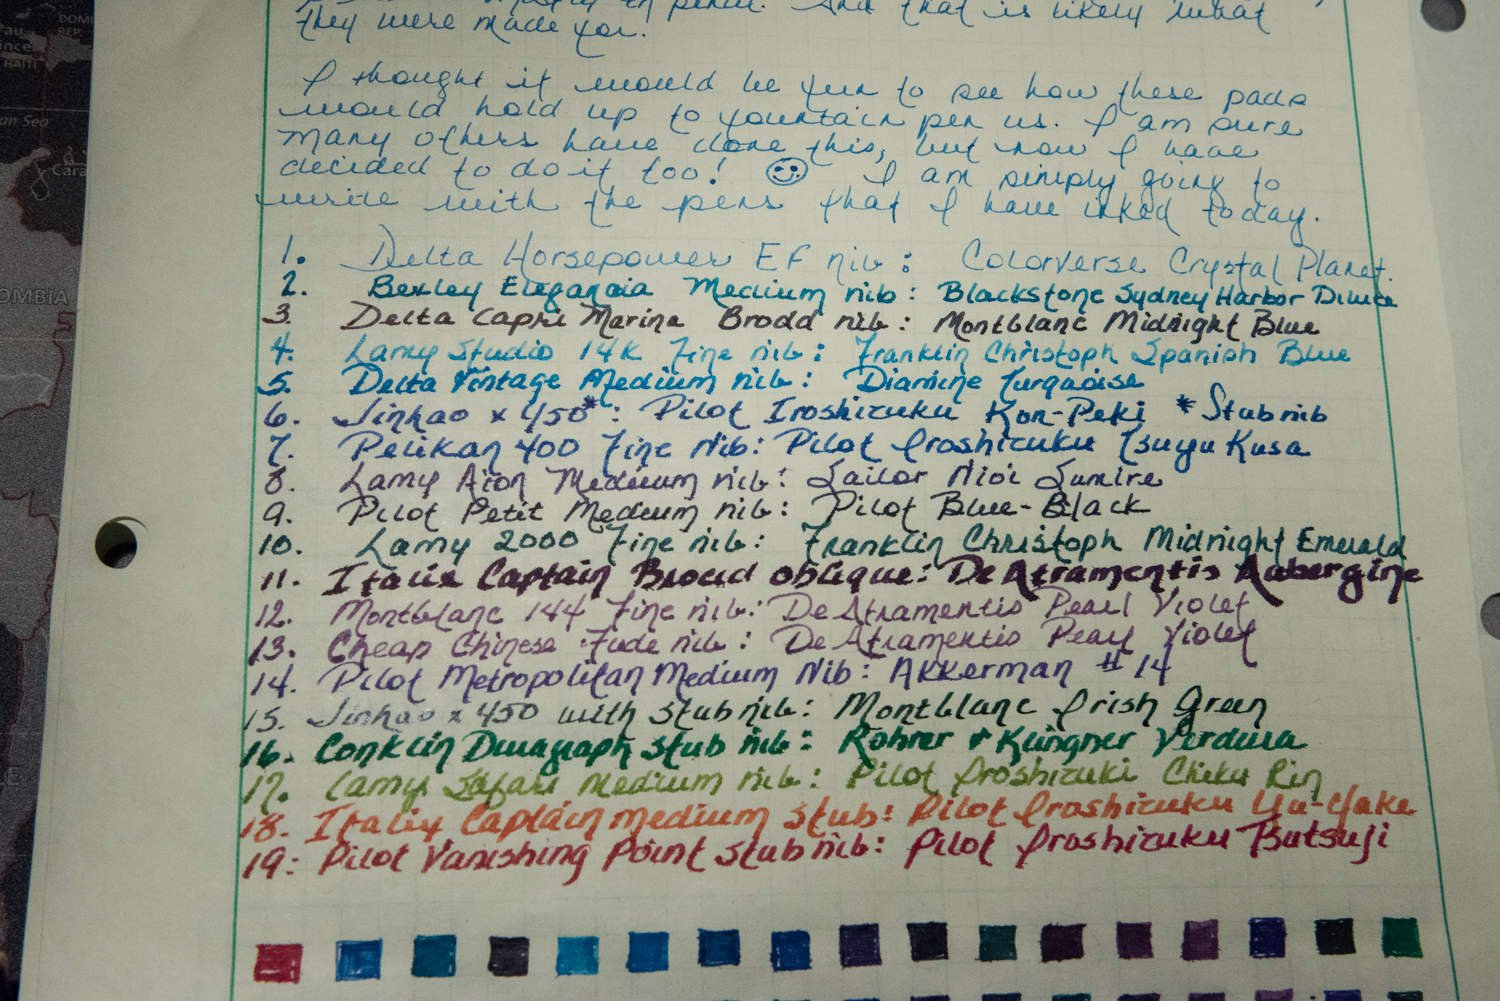 mostly in pencil. And that is likely what
they were made for.
I thought it would be fun to see how these pads
would hold up to fountain pen us. I am sure
many others have done this, but now I have
decided to do it too! I am simply going to
write with the pens that I have inked today.
1. Delta Horsepower EF nib: Colorverse Crystal Planet.
2. Bexley Elegancia Medium nib: Blackstone Sydney Harbor Dilute
3. Delta Capri Marina Broad nib: Montblanc Midnight Blue
4. Lamy Studio 14K Fine nib: Franklin Christoph Spanish Blue
5. Delta Vintage Medium nib: Diamine Turquoise
6. Jinhao x450*: Pilot Iroshizuku Kon-Peki * Stub nib
7. Pelikan 400 Fine Nib: Pilot Iroshizuku Tsuyu Kusa
8. Lamy Aion Medium nib: Sailor Nioi Sumire
9. Pilot Petit Medium nib: Pilot Blue-Black
10. Lamy 2000 Fine nib: Franklin Christoph Midnight Emerald
11. Italix Captain Broad oblique: De Atramentis Aubergine
12. Montblanc 144 Fine nib: De Atramentis Pearl Violet
13. Cheap Chinese Fude nib: De Atramentis Pearl Violet
14. Pilot Metropolitan Medium Nib: Akkerman #14
15. Jinhao x450 with stub nib: Montblanc Irish Green
16. Conklin Duragraph Stub nib: Rohrer + Klingner Verdura
17. Lamy Safari Medium nib: Pilot Iroshizuki Chiku Rin
18. Italix Captain medium stub: Pilot Iroshizuku Yu-Yake
19: Pilot Vanishing Point stub nib: Pilot Iroshizuku Tsutsuji
DOMI
REP.
HAITI
an Sea
Cara
OMBIA